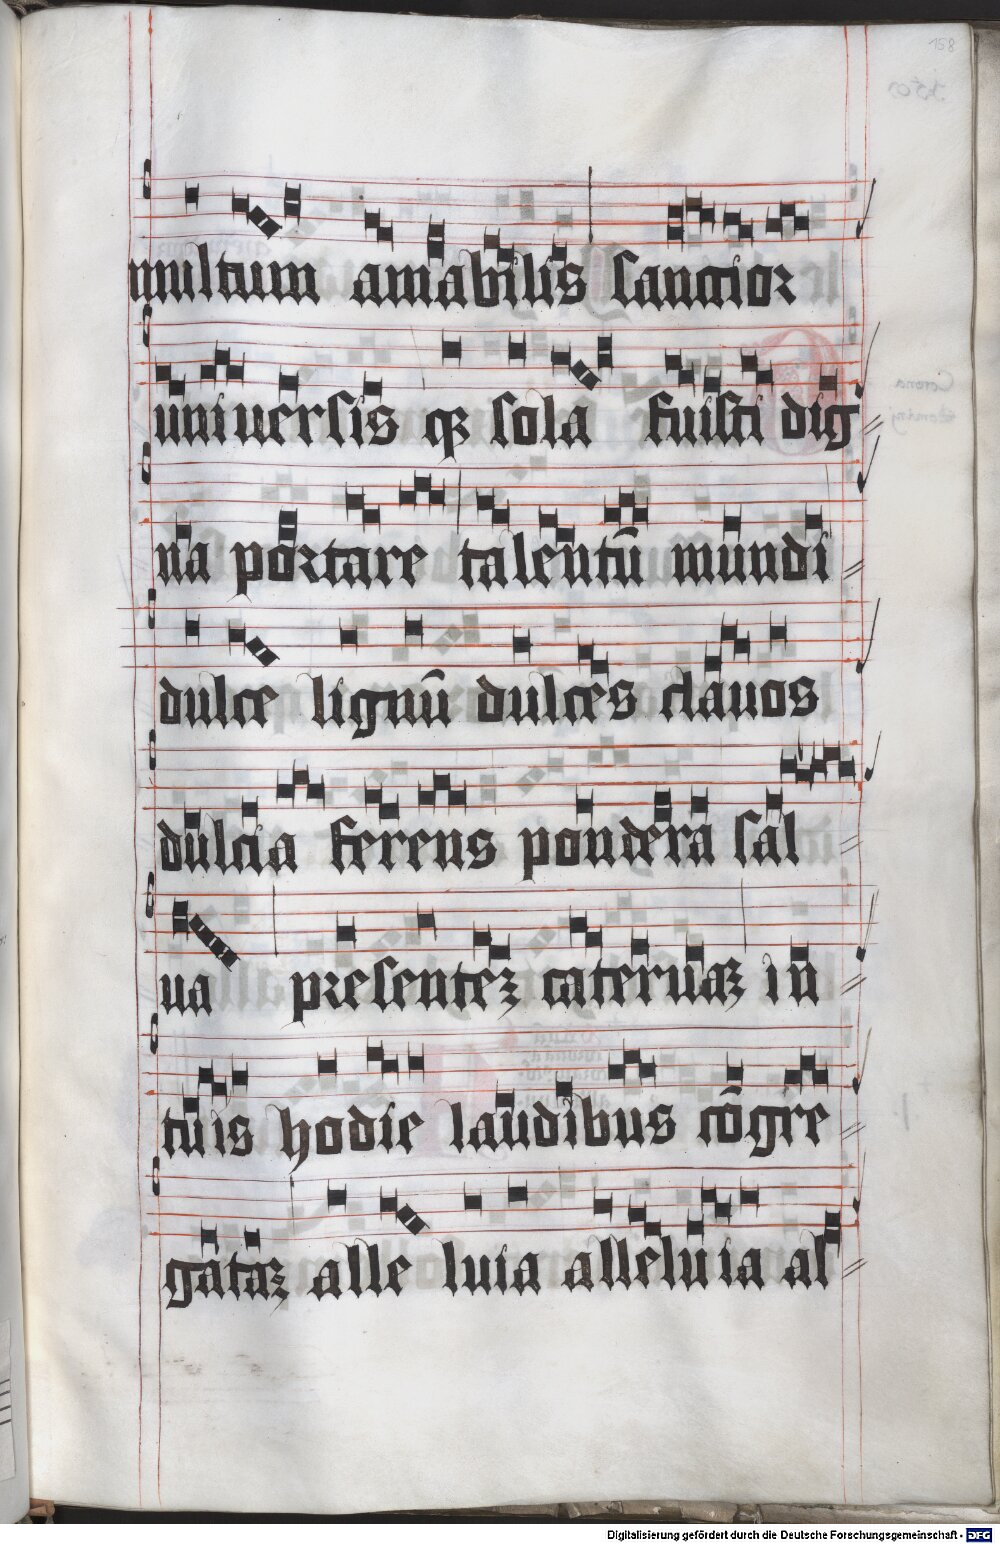 158
multum amabilis sanctior
uniuersis q̄ sola fuisti dig
na portare talentū mundi
dulce lignū dulces clauos
dulcia ferens pondera sal
ua presenteʒ cateruaʒ in
tuis hodie laudibus cōgre
gataʒ alle luia alleluia al
Digitalisierung gefördert durch die Deutsche Forschungsgemeinschaft - DFG